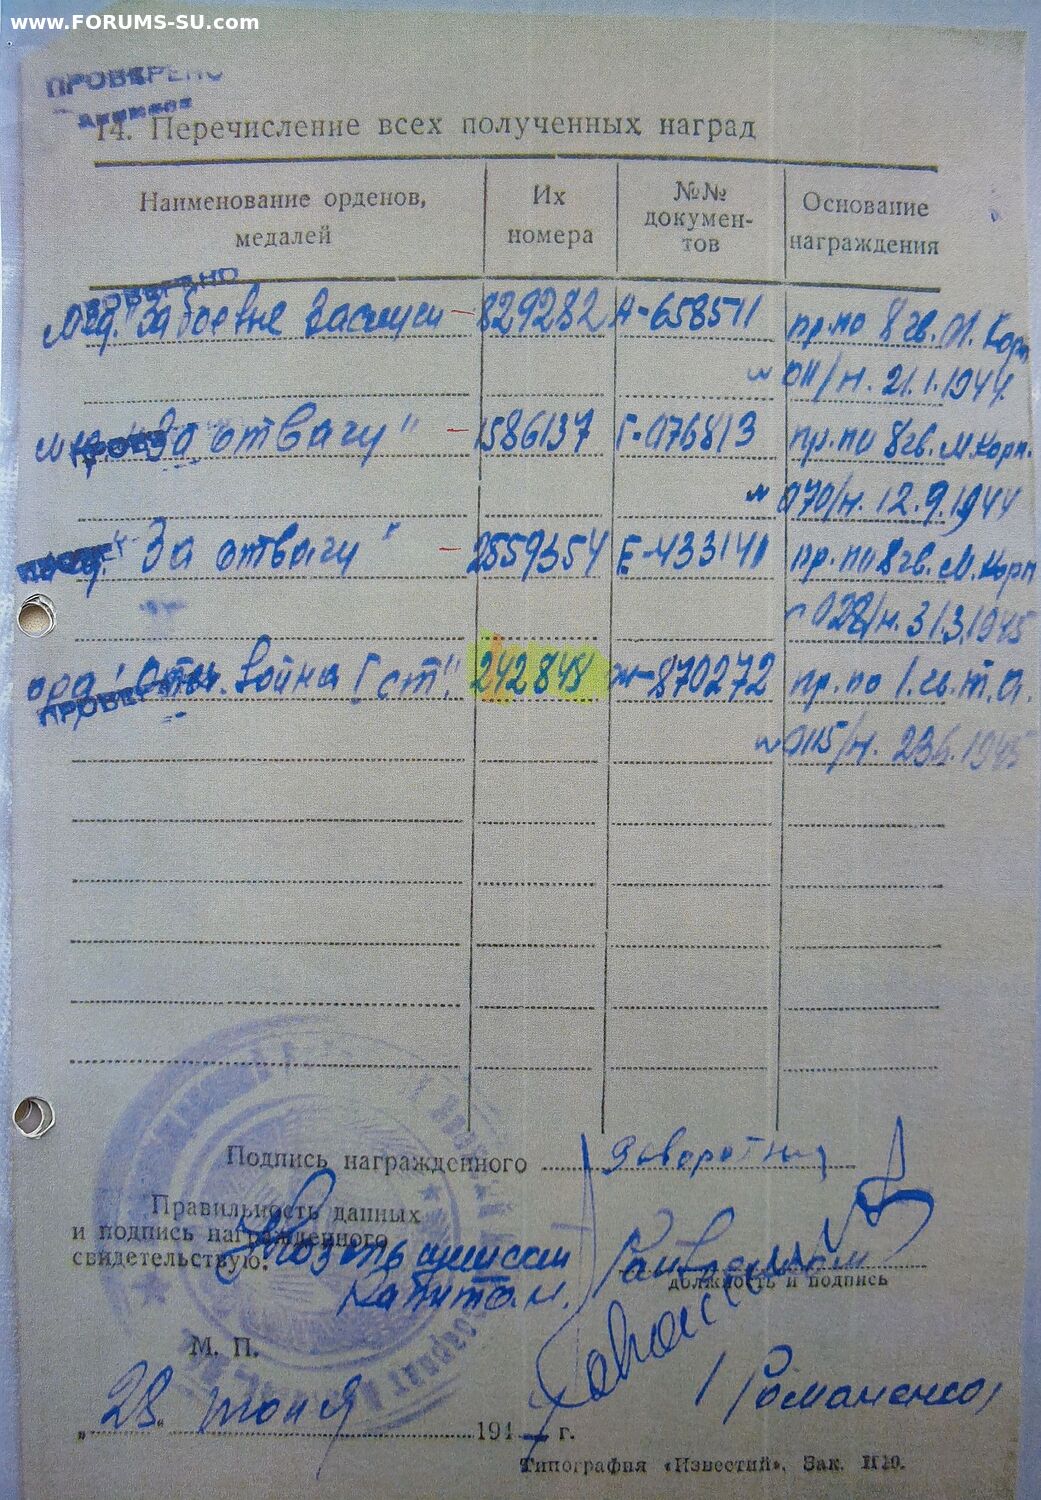 www.FORUMS-SU.com
ПРОВЕРЕНО
14. Перечисление всех полученных наград
Наименование орденов, медалей
Их номера
№№ докумен-тов
Основание награждения
ПРОВЕРЕНО
Мед. "За боевые Заслуги — 829282 А-658511 пр. по 8 гв. М. Корп
№ 011/н. 21.1.1944.
"За отвагу" — 1586137 Г-076813 пр. по 8 гв. М. Корп.
№ 070/н. 12.9.1944
"За отвагу" — 2559354 Е-433140 пр. по 8 гв. М. Корп
028/н. 31.3.1945
орд. "Отеч. Война I ст". 242848 Ж-870272 пр. по 1. гв. Т. А.
ПРОВЕРЕНО
№ 0115/н. 23.6.1945
Подпись награжденного
Правильность данных
и подпись награжденного
свидетельствую:
Капитан.
должность и подпись
М. П.
/Романенко/
„28“ июня 1947 г.
Типография «Известий». Зак.